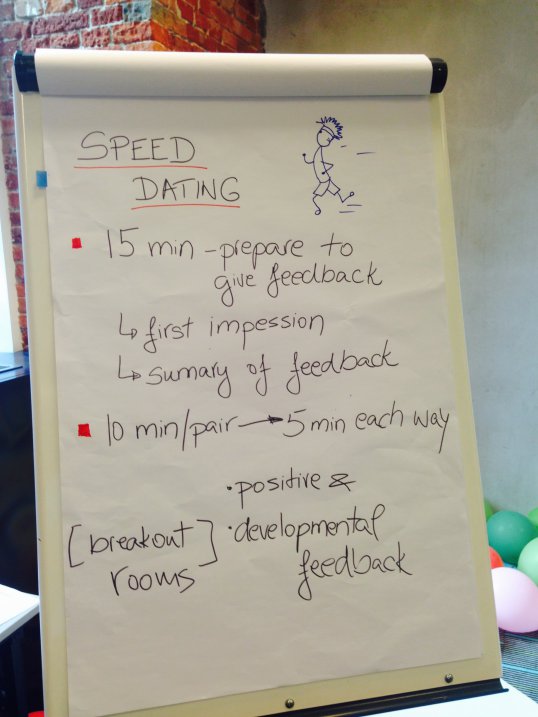 SPEED
DATING
15 min - prepare to
give feedback
↳ first impession
↳ sumary of feedback
10 min/pair → 5 min each way
• positive &
[breakout • developmental
rooms] feedback